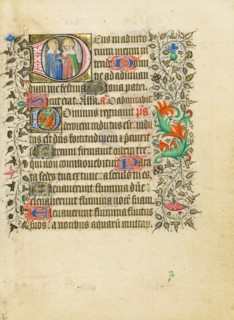 Deus in adiuto
rium meum in
tende Do
mine ad adiuuan
dum me festina Gloria patri.
Sicut erat. Alla. a.
Dominus regnauit ps
decorem indutus est: indu
tus est dns fortitudinem
se Etenim firmauit orbem terre:
qui non commouebitur. Para
ta sedes tua ex tunc: a seculo tu es.
Eleuauerunt flumina dne:
eleuauerunt flumina uocem suam.
Eleuauerunt flumina fluctus
suos: a uocibus aquarum